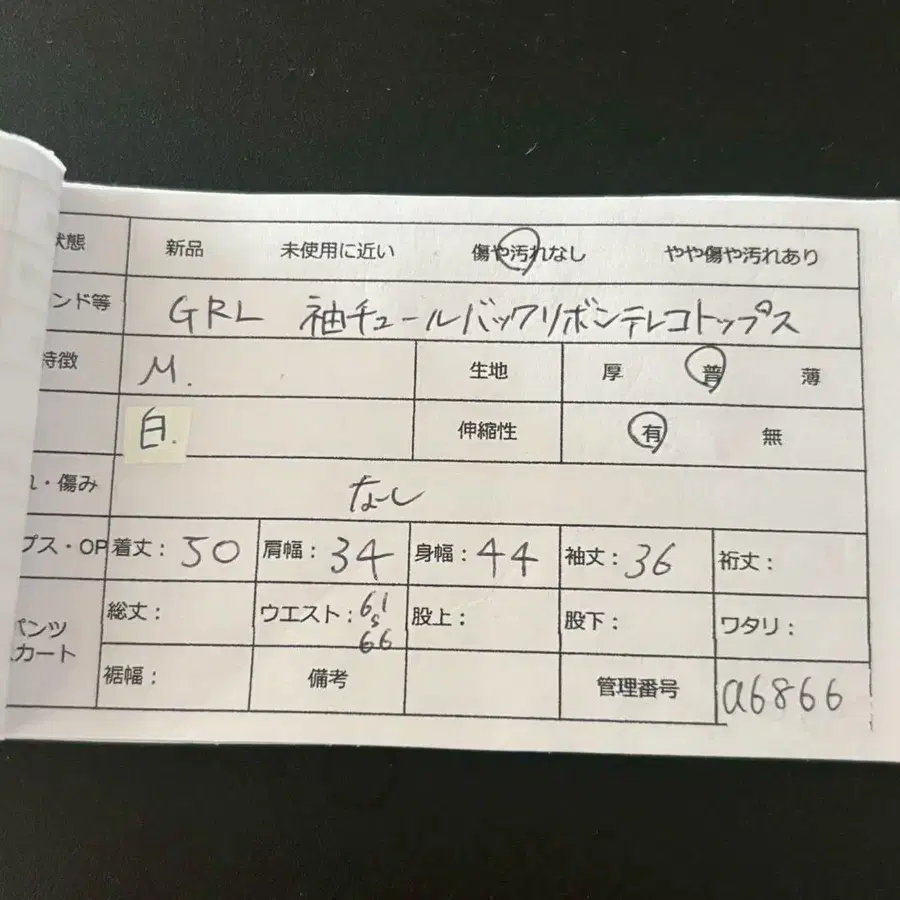 状態 新品 未使用に近い 傷や汚れなし やや傷や汚れあり
ンド等 GRL 袖チュールバックリボンテレコトップス
特徴 M. 生地 厚 普 薄
白. 伸縮性 有 無
れ・傷み なし
プス・OP 着丈：50 肩幅：34 身幅：44 袖丈：36 裄丈：
パンツ
スカート
総丈： ウエスト：61 s 66 股上： 股下： ワタリ：
裾幅： 備考 管理番号 a6866